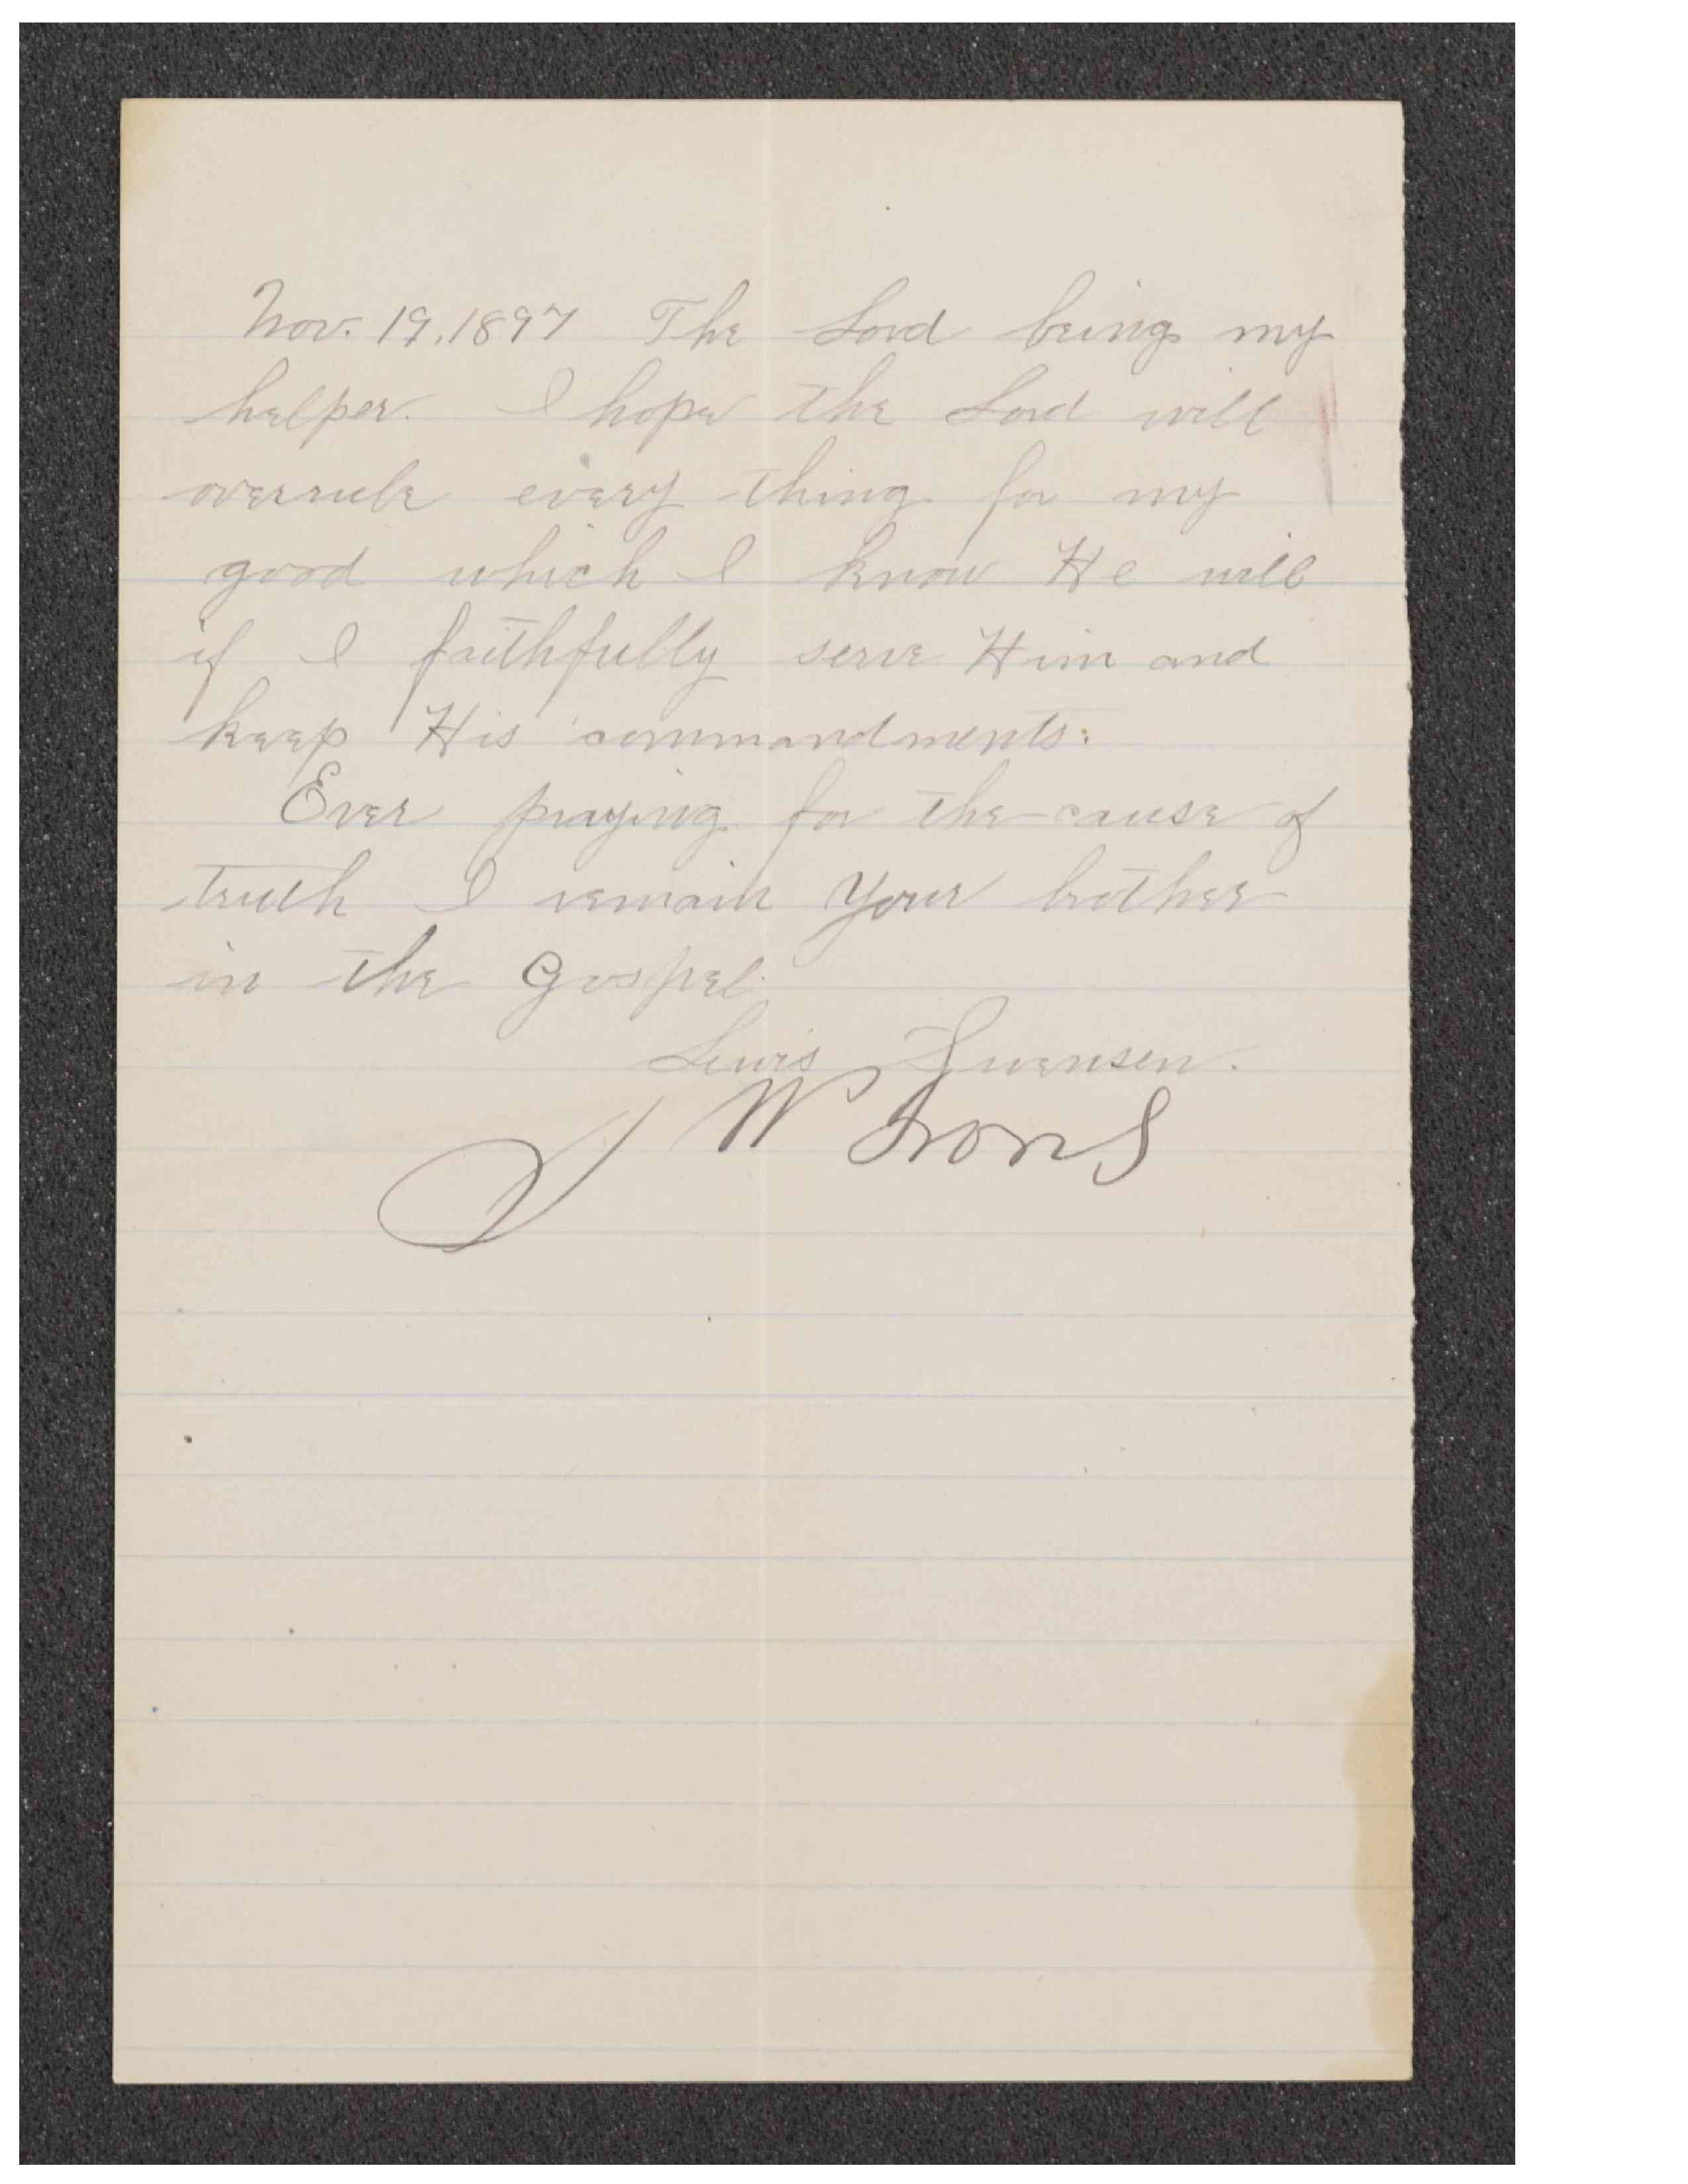 Nov. 19, 1897 The Lord being my
helper. I hope the Lord will
overrule every thing for my
good which I know He will
if I faithfully serve Him and
keep His commandments.
Ever praying for the cause of
truth I remain Your brother
in the Gospel.
Lewis Swensen.
J W Irons